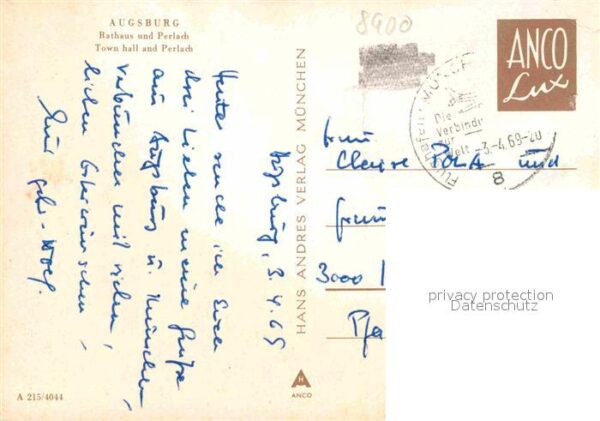 AUGSBURG
Rathaus und Perlach
Town hall and Perlach
8900
ANCO
Lux
Flughafen
Die
Verbindung
zur
Welt
-3.-4.69-20
8
Augsburg, 3.4.69
Heute sende ich Euch
drei Lieben meine Grüße
aus Augsburg u. München,
verbunden mit vielen,
lieben Osterwünschen.
HANS ANDRES VERLAG MÜNCHEN
Frau
POLA und
Frau
3000
A 215/4044
H
ANCO
privacy protection
Datenschutz